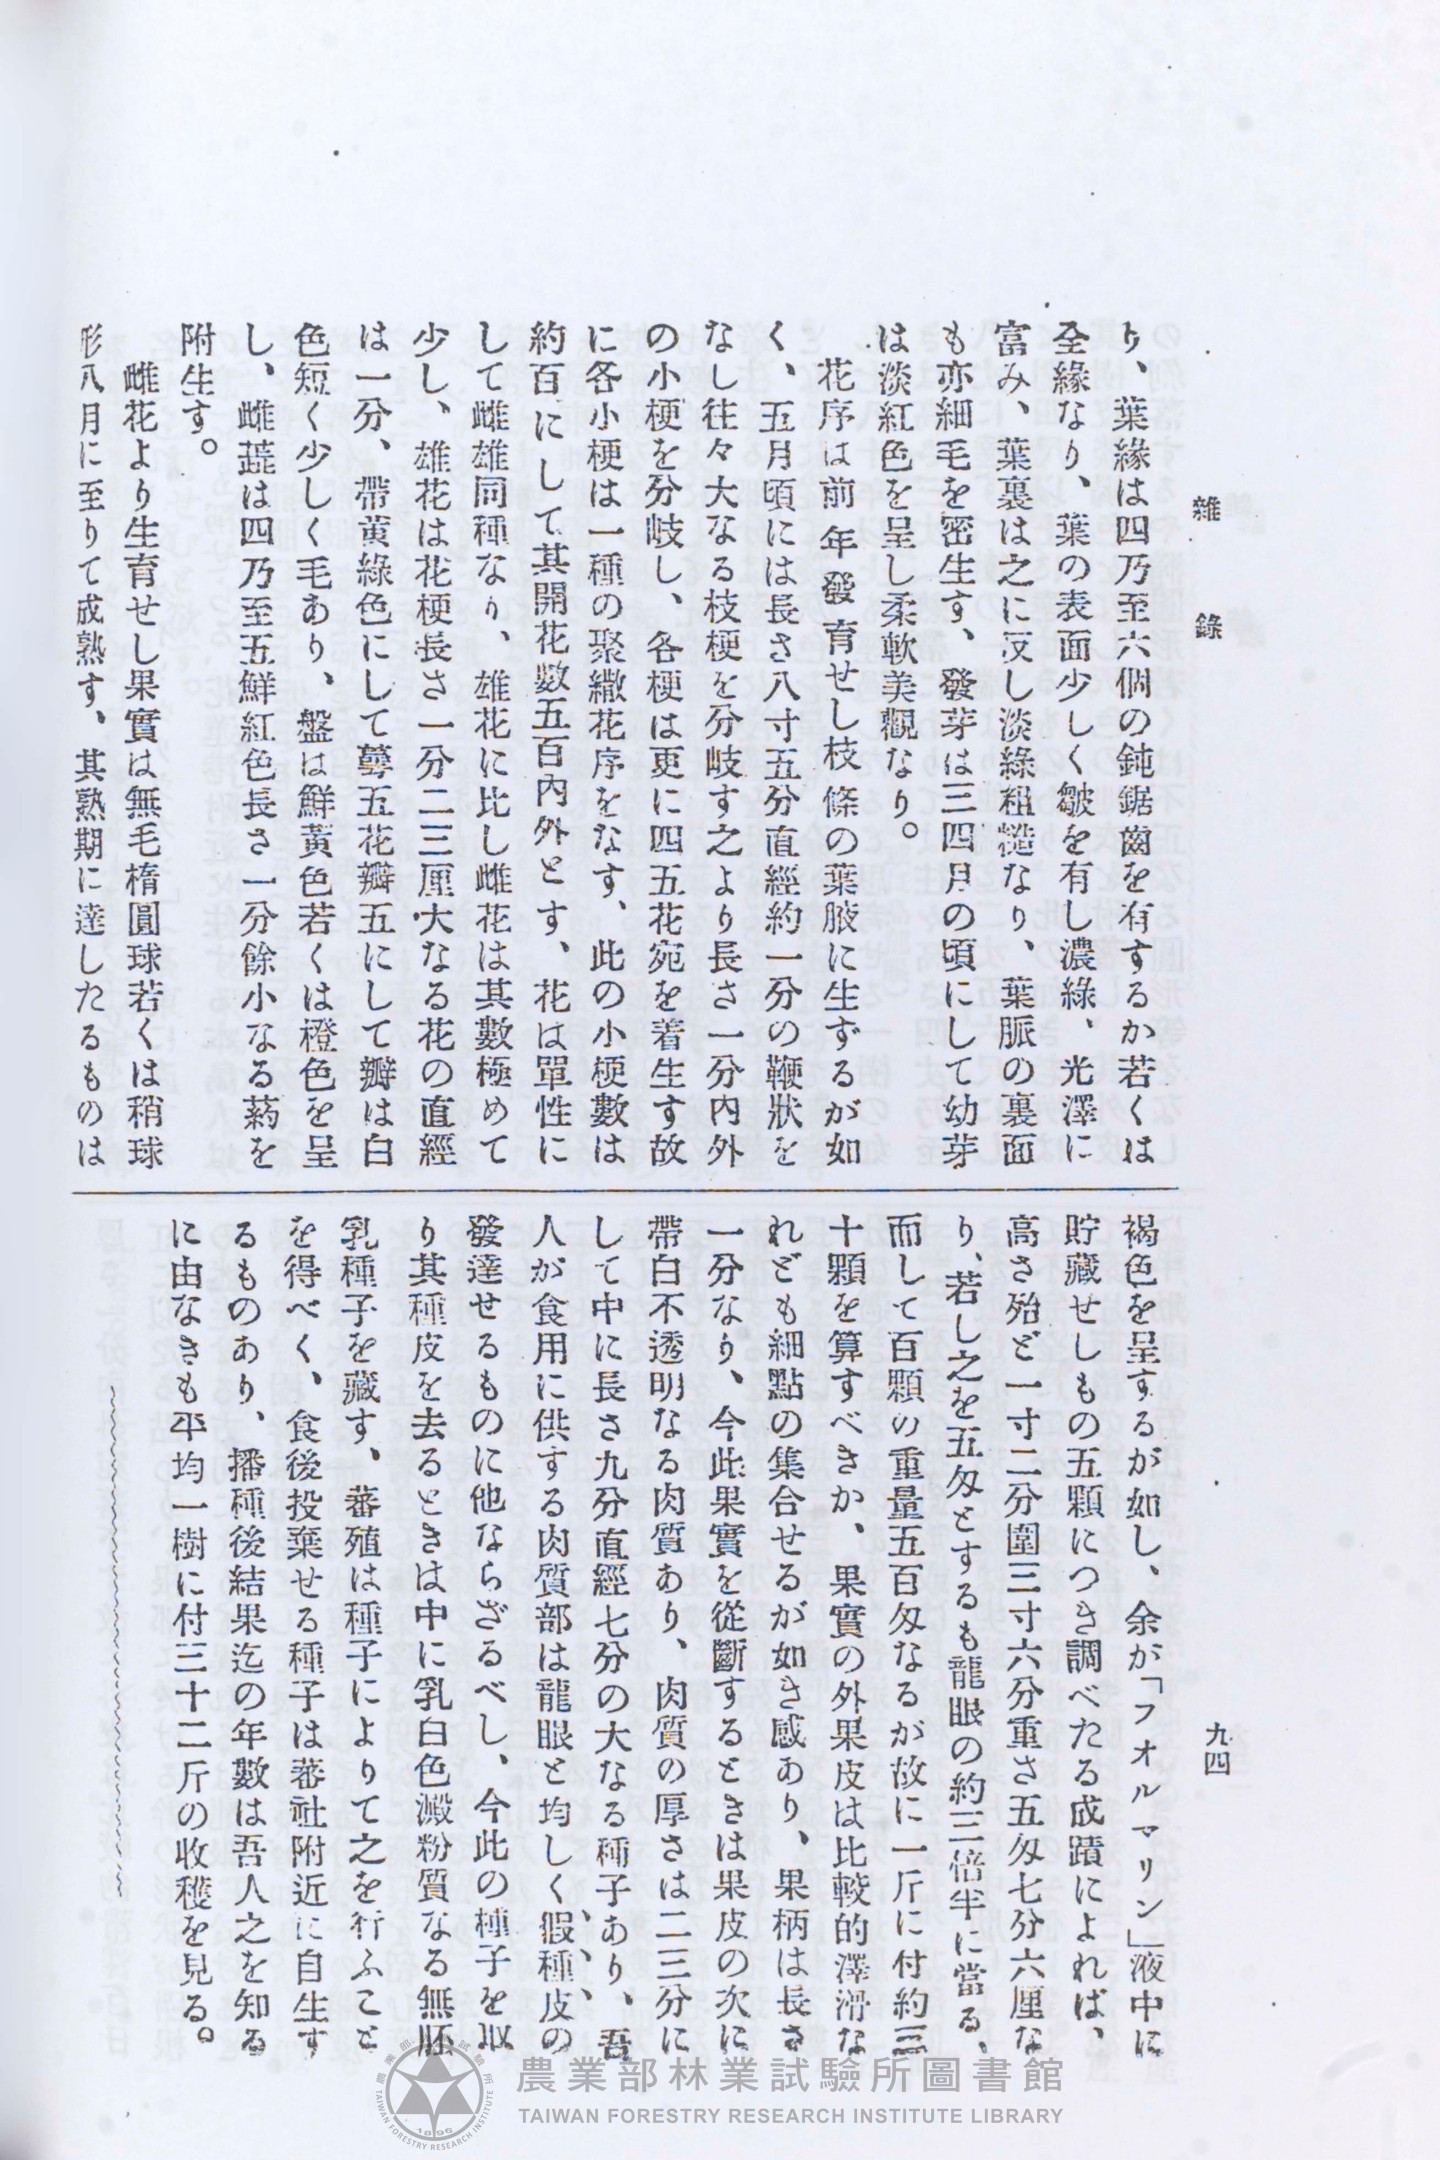 雜錄
り、葉緣は四乃至六個の鈍鋸齒を有するか若くは
全緣なり、葉の表面少しく皺を有し濃綠、光澤に
富み、葉裏は之に反し淡綠粗糙なり、葉脈の裏面
も亦細毛を密生す、發芽は三四月の頃にして幼芽
は淡紅色を呈し柔軟美觀なり。
花序は前年發育せし枝條の葉腋に生ずるが如
く、五月頃には長さ八寸五分直經約一分の鞭狀を
なし往々大なる枝梗を分岐す之より長さ一分內外
の小梗を分岐し、各梗は更に四五花宛を着生す故
に各小梗は一種の聚繖花序をなす、此の小梗數は
約百にして其開花數五百內外とす、花は單性に
して雌雄同種なり、雄花に比し雌花は其數極めて
少し、雄花は花梗長さ一分二三厘大なる花の直經
は一分、帶黃綠色にして萼五花瓣五にして瓣は白
色短く少しく毛あり、盤は鮮黃色若くは橙色を呈
し、雌蕋は四乃至五鮮紅色長さ一分餘小なる葯を
附生す。
雌花より生育せし果實は無毛楕圓球若くは稍球
形八月に至りて成熟す、其熟期に達したるものは
褐色を呈するが如し、余が「フオルマリン」液中に
貯藏せしもの五顆につき調べたる成蹟によれば、
高さ殆ど一寸二分圍三寸六分重さ五匁七分六厘な
り、若し之を五匁とするも龍眼の約三倍半に當る、
而して百顆の重量五百匁なるが故に一斤に付約三
十顆を算すべきか、果實の外果皮は比較的澤滑な
れども細點の集合せるが如き感あり、果柄は長さ
一分なり、今此果實を從斷するときは果皮の次に
帶白不透明なる肉質あり、肉質の厚さは二三分に
して中に長さ九分直經七分の大なる種子あり、吾
人が食用に供する肉質部は龍眼と均しく假種皮の
發達せるものに他ならざるべし、今此の種子を取
り其種皮を去るときは中に乳白色澱粉質なる無胚
乳種子を藏す、蕃殖は種子によりて之を行ふこと
を得べく、食後投棄せる種子は蕃社附近に自生す
るものあり、播種後結果迄の年數は吾人之を知る
に由なきも平均一樹に付三十二斤の收穫を見る。
九四
農業部林業試驗所圖書館
TAIWAN FORESTRY RESEARCH INSTITUTE LIBRARY
農業部林業試驗所
TAIWAN FORESTRY RESEARCH INSTITUTE
1896